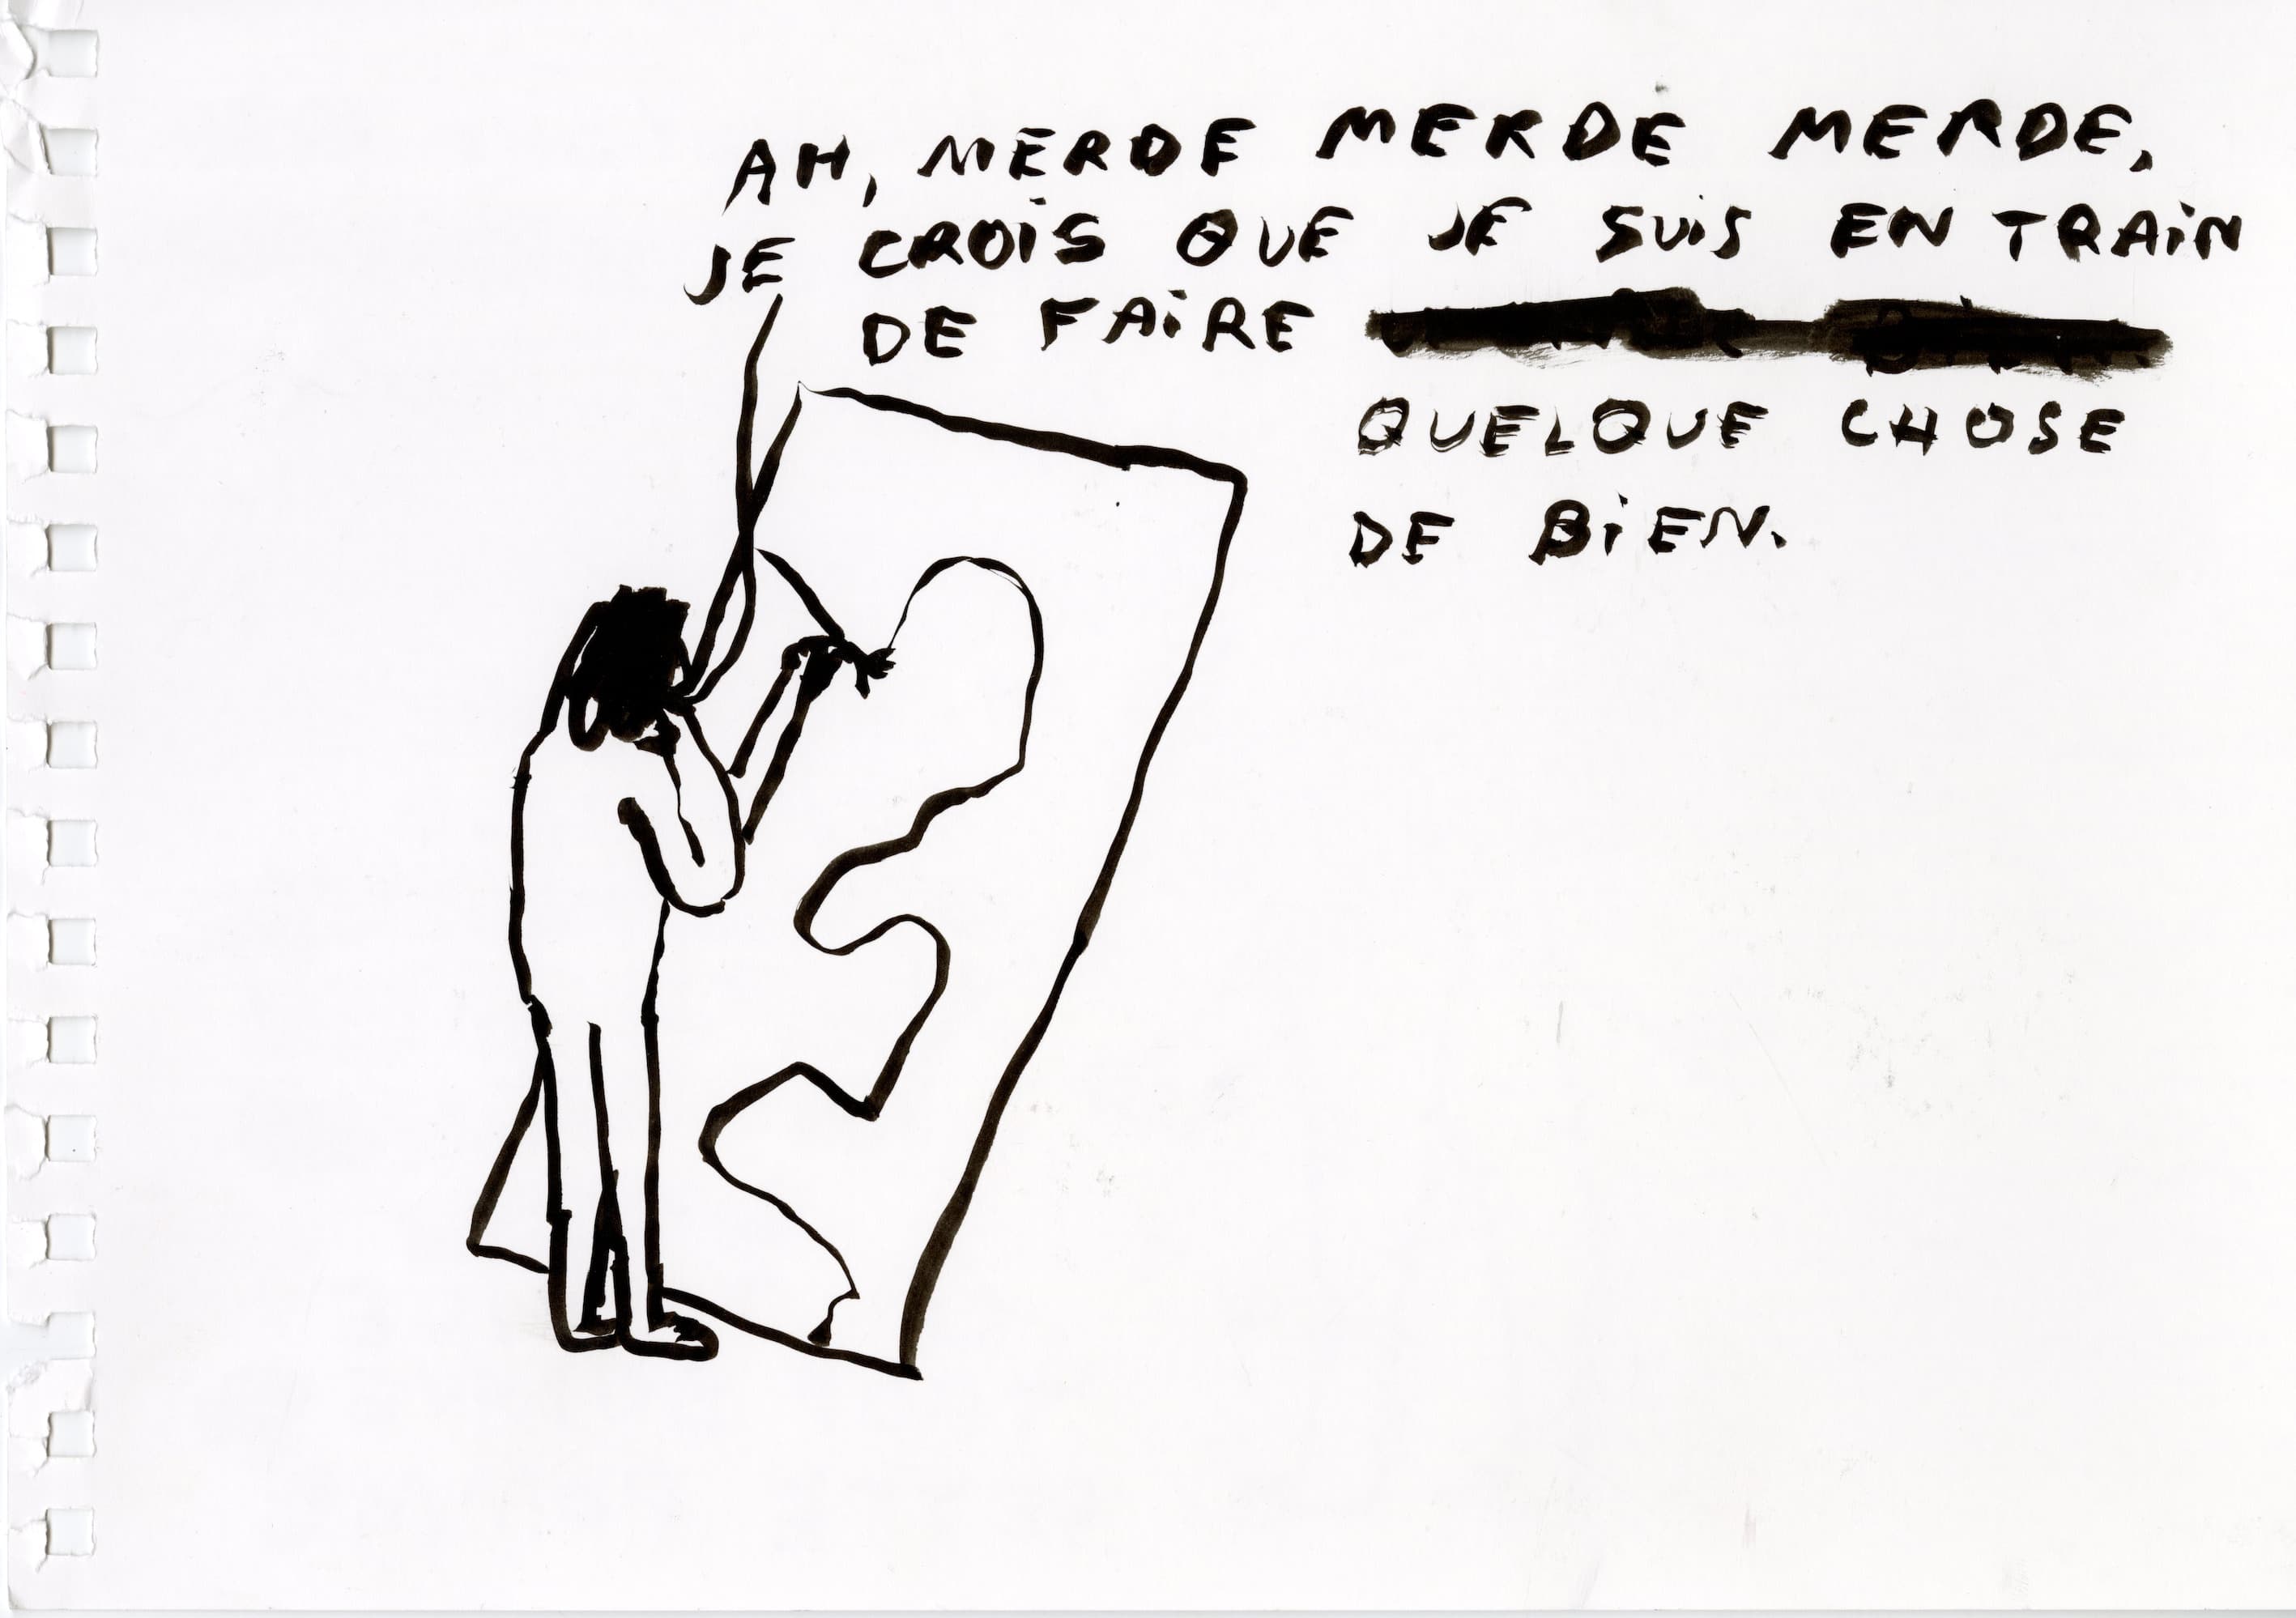 AH, MERDE MERDE MERDE,
JE CROIS QUE JE SUIS EN TRAIN
DE FAIRE
QUELQUE CHOSE
DE BIEN.